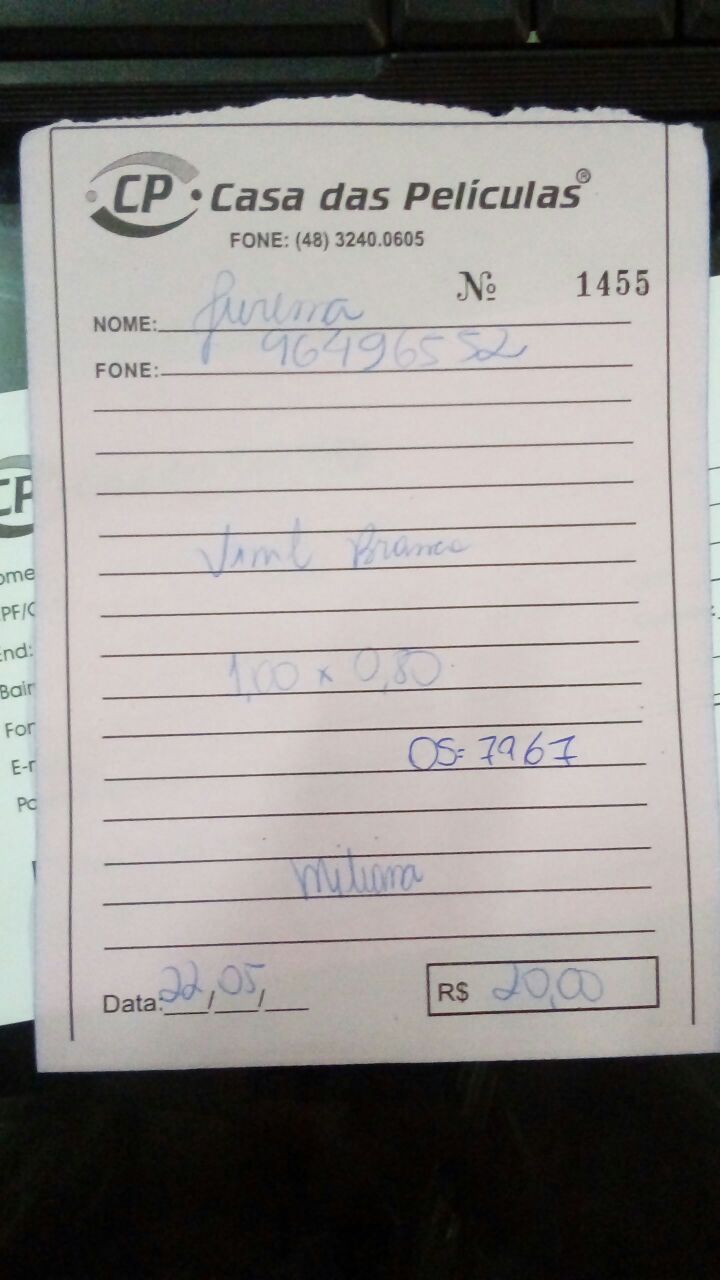 CP Casa das Películas®
FONE: (48) 3240.0605
Nº 1455
NOME: Jurema
FONE: 96496552
Vinil Branco
1,00 x 0,80
OS: 7967
Data: 22/05/
R$ 20,00
CP
End: